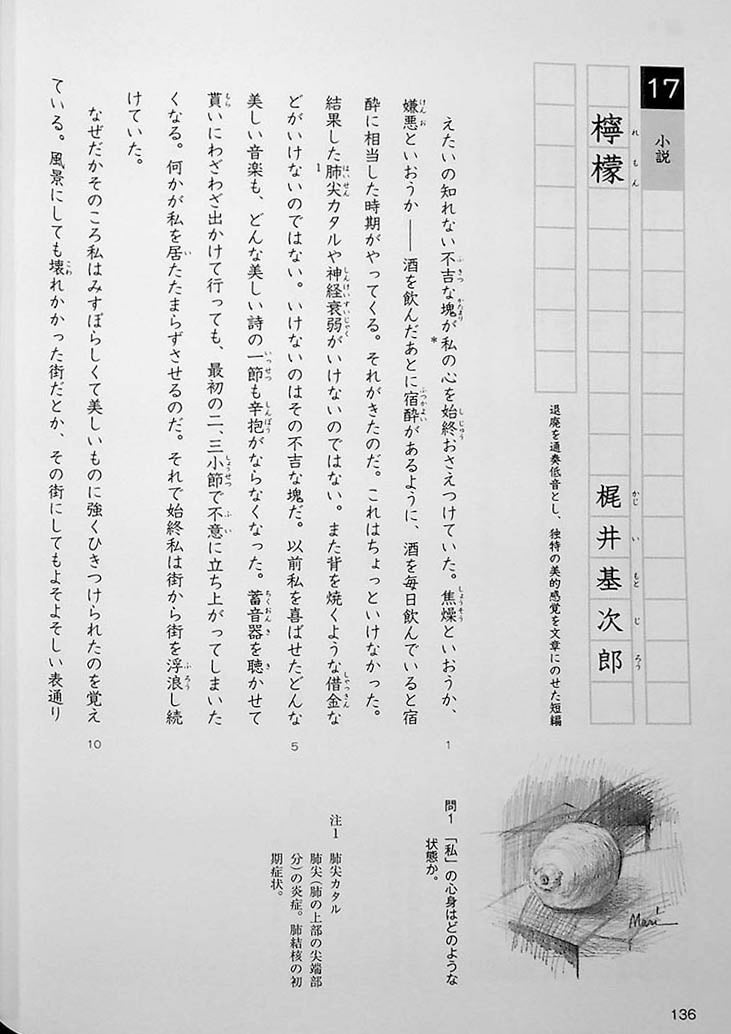 17
小説
檸檬
れもん
梶井基次郎
かじいもとじろう
退廃を通奏低音とし、独特の美的感覚を文章にのせた短編
えたいの知れない不吉な塊が私の心を始終おさえつけていた。焦燥といおうか、
嫌悪といおうか――酒を飲んだあとに宿酔があるように、酒を毎日飲んでいると宿
酔に相当した時期がやってくる。それがきたのだ。これはちょっといけなかった。
結果した肺尖カタルや神経衰弱がいけないのではない。また背を焼くような借金な
どがいけないのではない。いけないのはその不吉な塊だ。以前私を喜ばせたどんな
美しい音楽も、どんな美しい詩の一節も辛抱がならなくなった。蓄音器を聴かせて
貰いにわざわざ出かけて行っても、最初の二、三小節で不意に立ち上がってしまいた
くなる。何かが私を居たたまらずさせるのだ。それで始終私は街から街を浮浪し続
けていた。
なぜだかそのころ私はみすぼらしくて美しいものに強くひきつけられたのを覚え
ている。風景にしても壊れかかった街だとか、その街にしてもよそよそしい表通り
1
5
10
Mari
問1 「私」の心身はどのような
状態か。
注1 肺尖カタル
肺尖(肺の上部の尖端部
分)の炎症。肺結核の初
期症状。
136